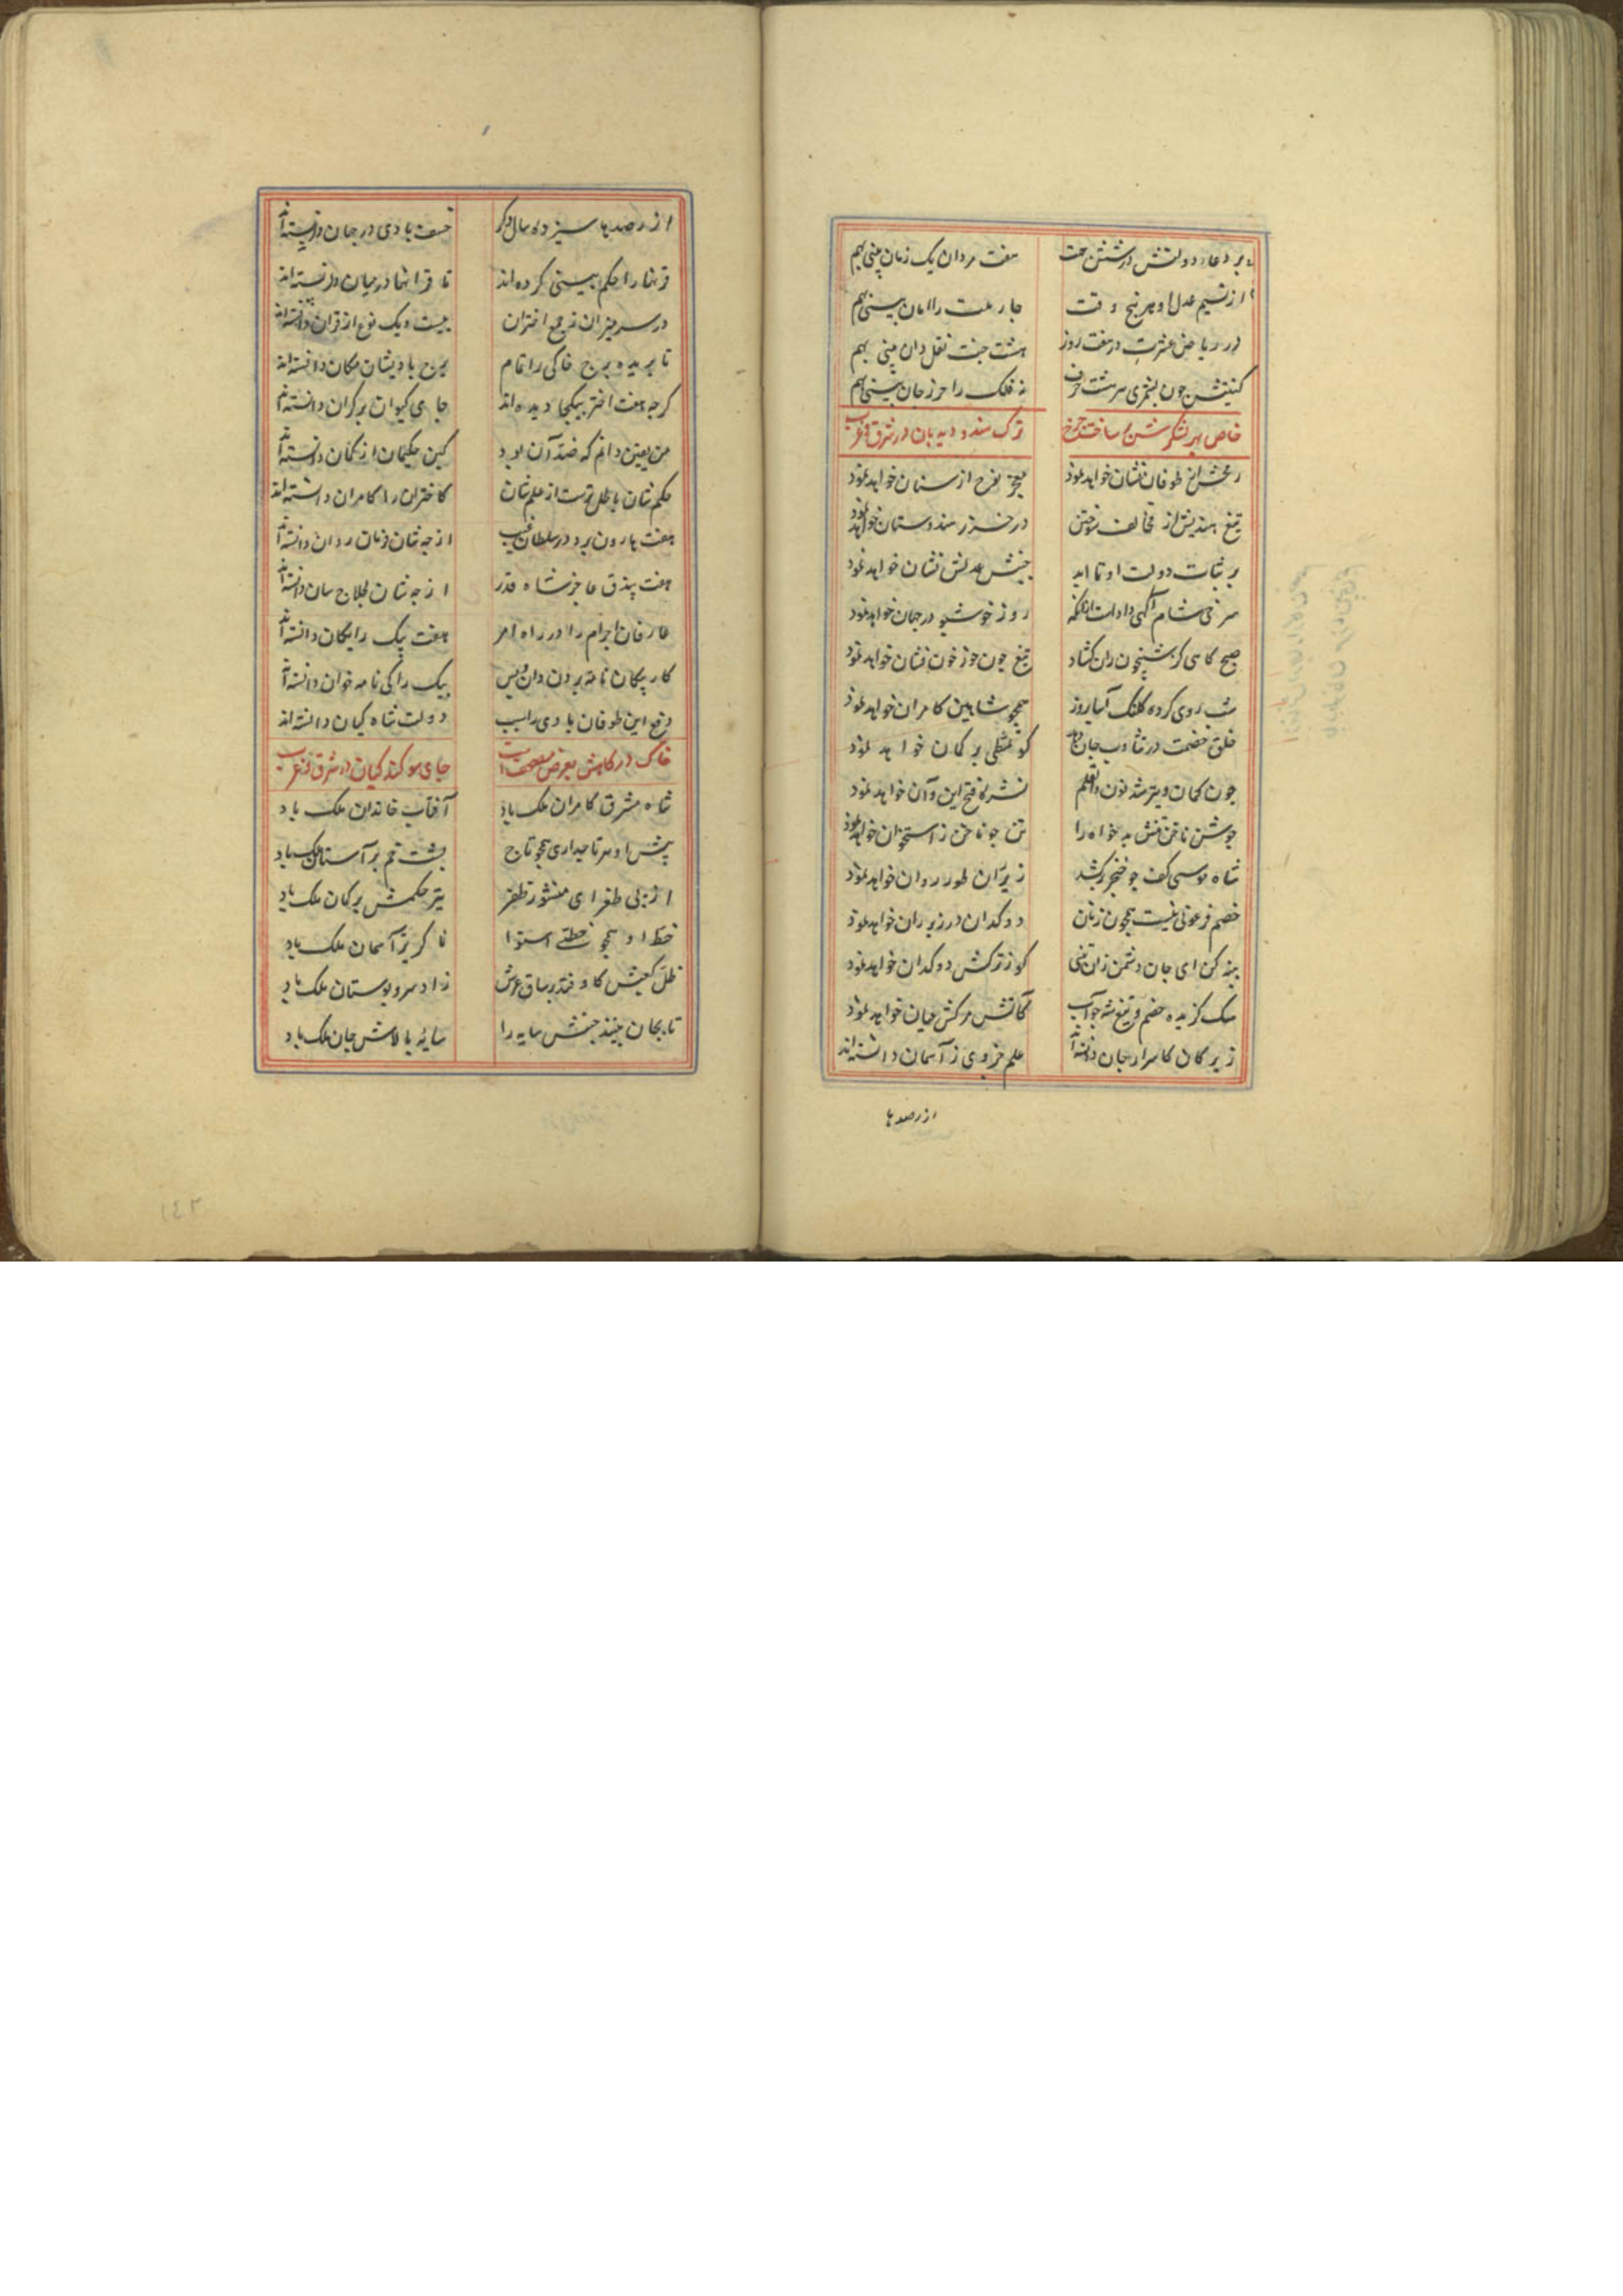 بر دعاء دولتش در شش جهت هفت مردان یک زمان بینی بهم
از نسیم عدل او هر پنج وقت چار ملت را امان بینی بهم
در ریاض عشرتت در هفت روز هشت جنت نقل دان بینی بهم
کنیتش چون بشمری سر هشت حرف نه فلک را حرز جان بینی بهم
خاص بهر لشکرش ساخت چرخ ترک هندو و دیدبان در شرق و غرب
رمحش از طوفان نشان خواهد نمود معجز نوح از سنان خواهد نمود
تیغ هندیش از مخالف سوختن در خزر هندوستان خواهد نمود
بر ثبات دولت او تا ابد جنبش عدلش نشان خواهد نمود
سرخی شام آگهی داد است از آنکه روز خوش در جهان خواهد نمود
صبح گاهی کز شبیخون ران گشاد تیغ چون جوز خون فشان خواهد نمود
شب روی کرده کلنگ آسا روز همچو شاهین کامران خواهد نمود
خلق خصمت در تثاوب جان دهد کو تمطی بر کمان خواهد نمود
چون کمان و تیر شد نون والقلم نشره فتح این و آن خواهد نمود
جوشن ناخن تنش بد خواه را تن چو ناخن ز استخوان خواهد نمود
شاه موسی کف چو خنجر برکشد زیر ران طور روان خواهد نمود
خصم فرعونی نیست همچون زنان دوکدان در زیر ران خواهد نمود
پند کن ای جان دشمن زان تنی کو ز ترکش دوکدان خواهد نمود
سگ گزیده خصم و تیغ شه چو آب کآتش مرگش عیان خواهد نمود
زیرکان کاسرار جان دانسته‌اند علم جزوی ز آسمان دانسته‌اند
از رصدها
از رصدها سیزده سال دگر خسف بادی در جهان دانسته‌اند
قرنها را حکم بیشی کرده‌اند تا قرانها در میان دانسته‌اند
در سر میزان ز جمع اختران بیست و یک نوع از قران دانسته‌اند
تا بریده برج خاکی را تمام برج بادیشان مکان دانسته‌اند
گرچه هفت اختر بیکجا دیده‌اند جای کیوان بر کران دانسته‌اند
من یقین دانم که ضد آن بود کین حکیمان از گمان دانسته‌اند
حکم شان باطل ترست از علم شان کاختران را کامران دانسته‌اند
هفت هارون بر در سلطان غیب از چه شان فرمان روان دانسته‌اند
هفت بیذق عاجز شاه قدر از چه شان لجلاج سان دانسته‌اند
عارفان اجرام را در راه امر هفت پیک رایگان دانسته‌اند
کار پیکان نامه بردن دان و بس پیک را کی نامه خوان دانسته‌اند
دفع این طوفان بادی را سبب دولت شاه کیان دانسته‌اند
خاک درگاهش بعرض مصحفست جای سوگند کیان در شرق و غرب
شاه مشرق کامران ملک باد آفتاب خاندان ملک باد
پیش او هر تاجداری همچو تاج پشت خم بر آستان ملک باد
از پی طغرای منشور ظفر تیر حکمش بر کمان ملک باد
خط او همچو خط استوا ناگزیر آسمان ملک باد
ظل کعبش کاوفتد بر ساق عرش زاد سرو بوستان ملک باد
تا بجان بینند جنبش سایه را سایه بالاش جان ملک باد
۱۴۲